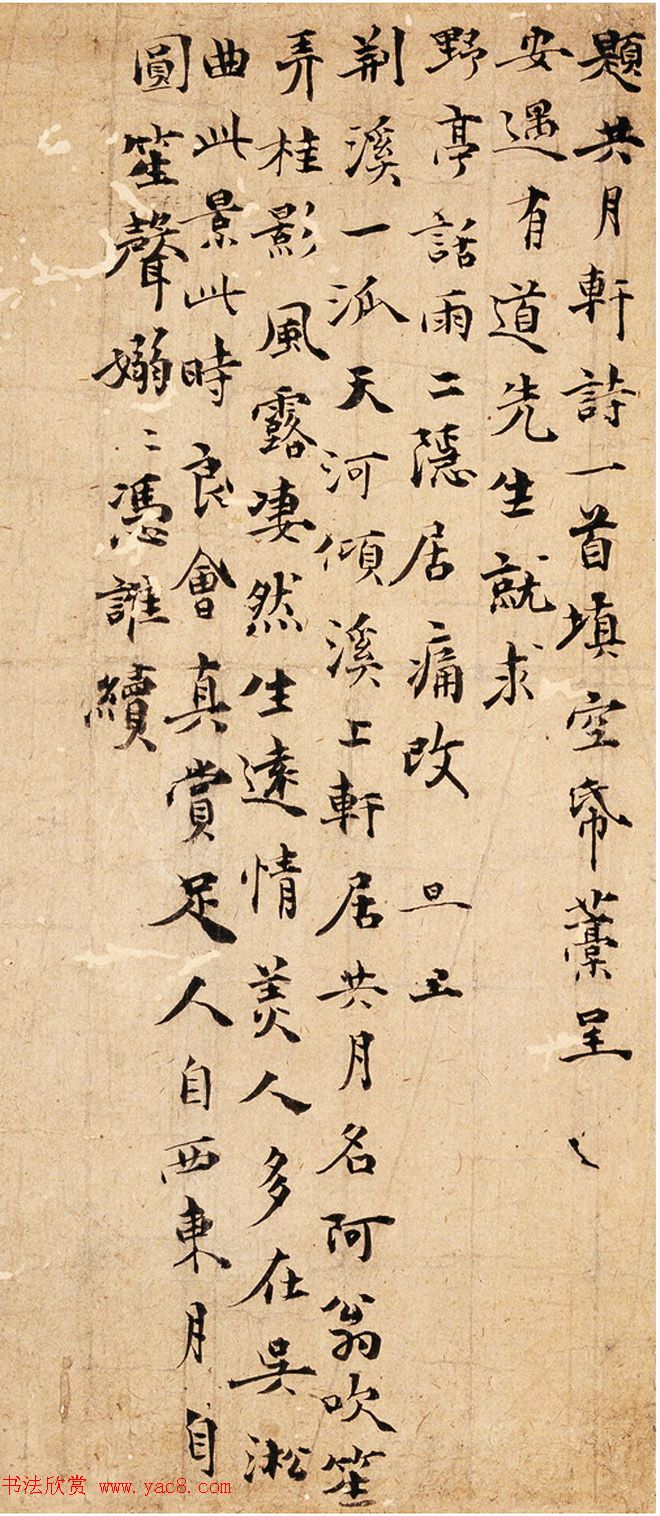 題共月軒詩一首填空帋藁呈
安遇有道先生就求
野亭話雨二隱居痛改 旦上
荆溪一派天河傾溪上軒居共月名阿翁吹笙
弄桂影風露凄然生遠情美人多在吳淞
曲此景此時良會真賞足人自西東月自
圓笙聲嫋〻憑誰續
书法欣赏 www.yac8.com